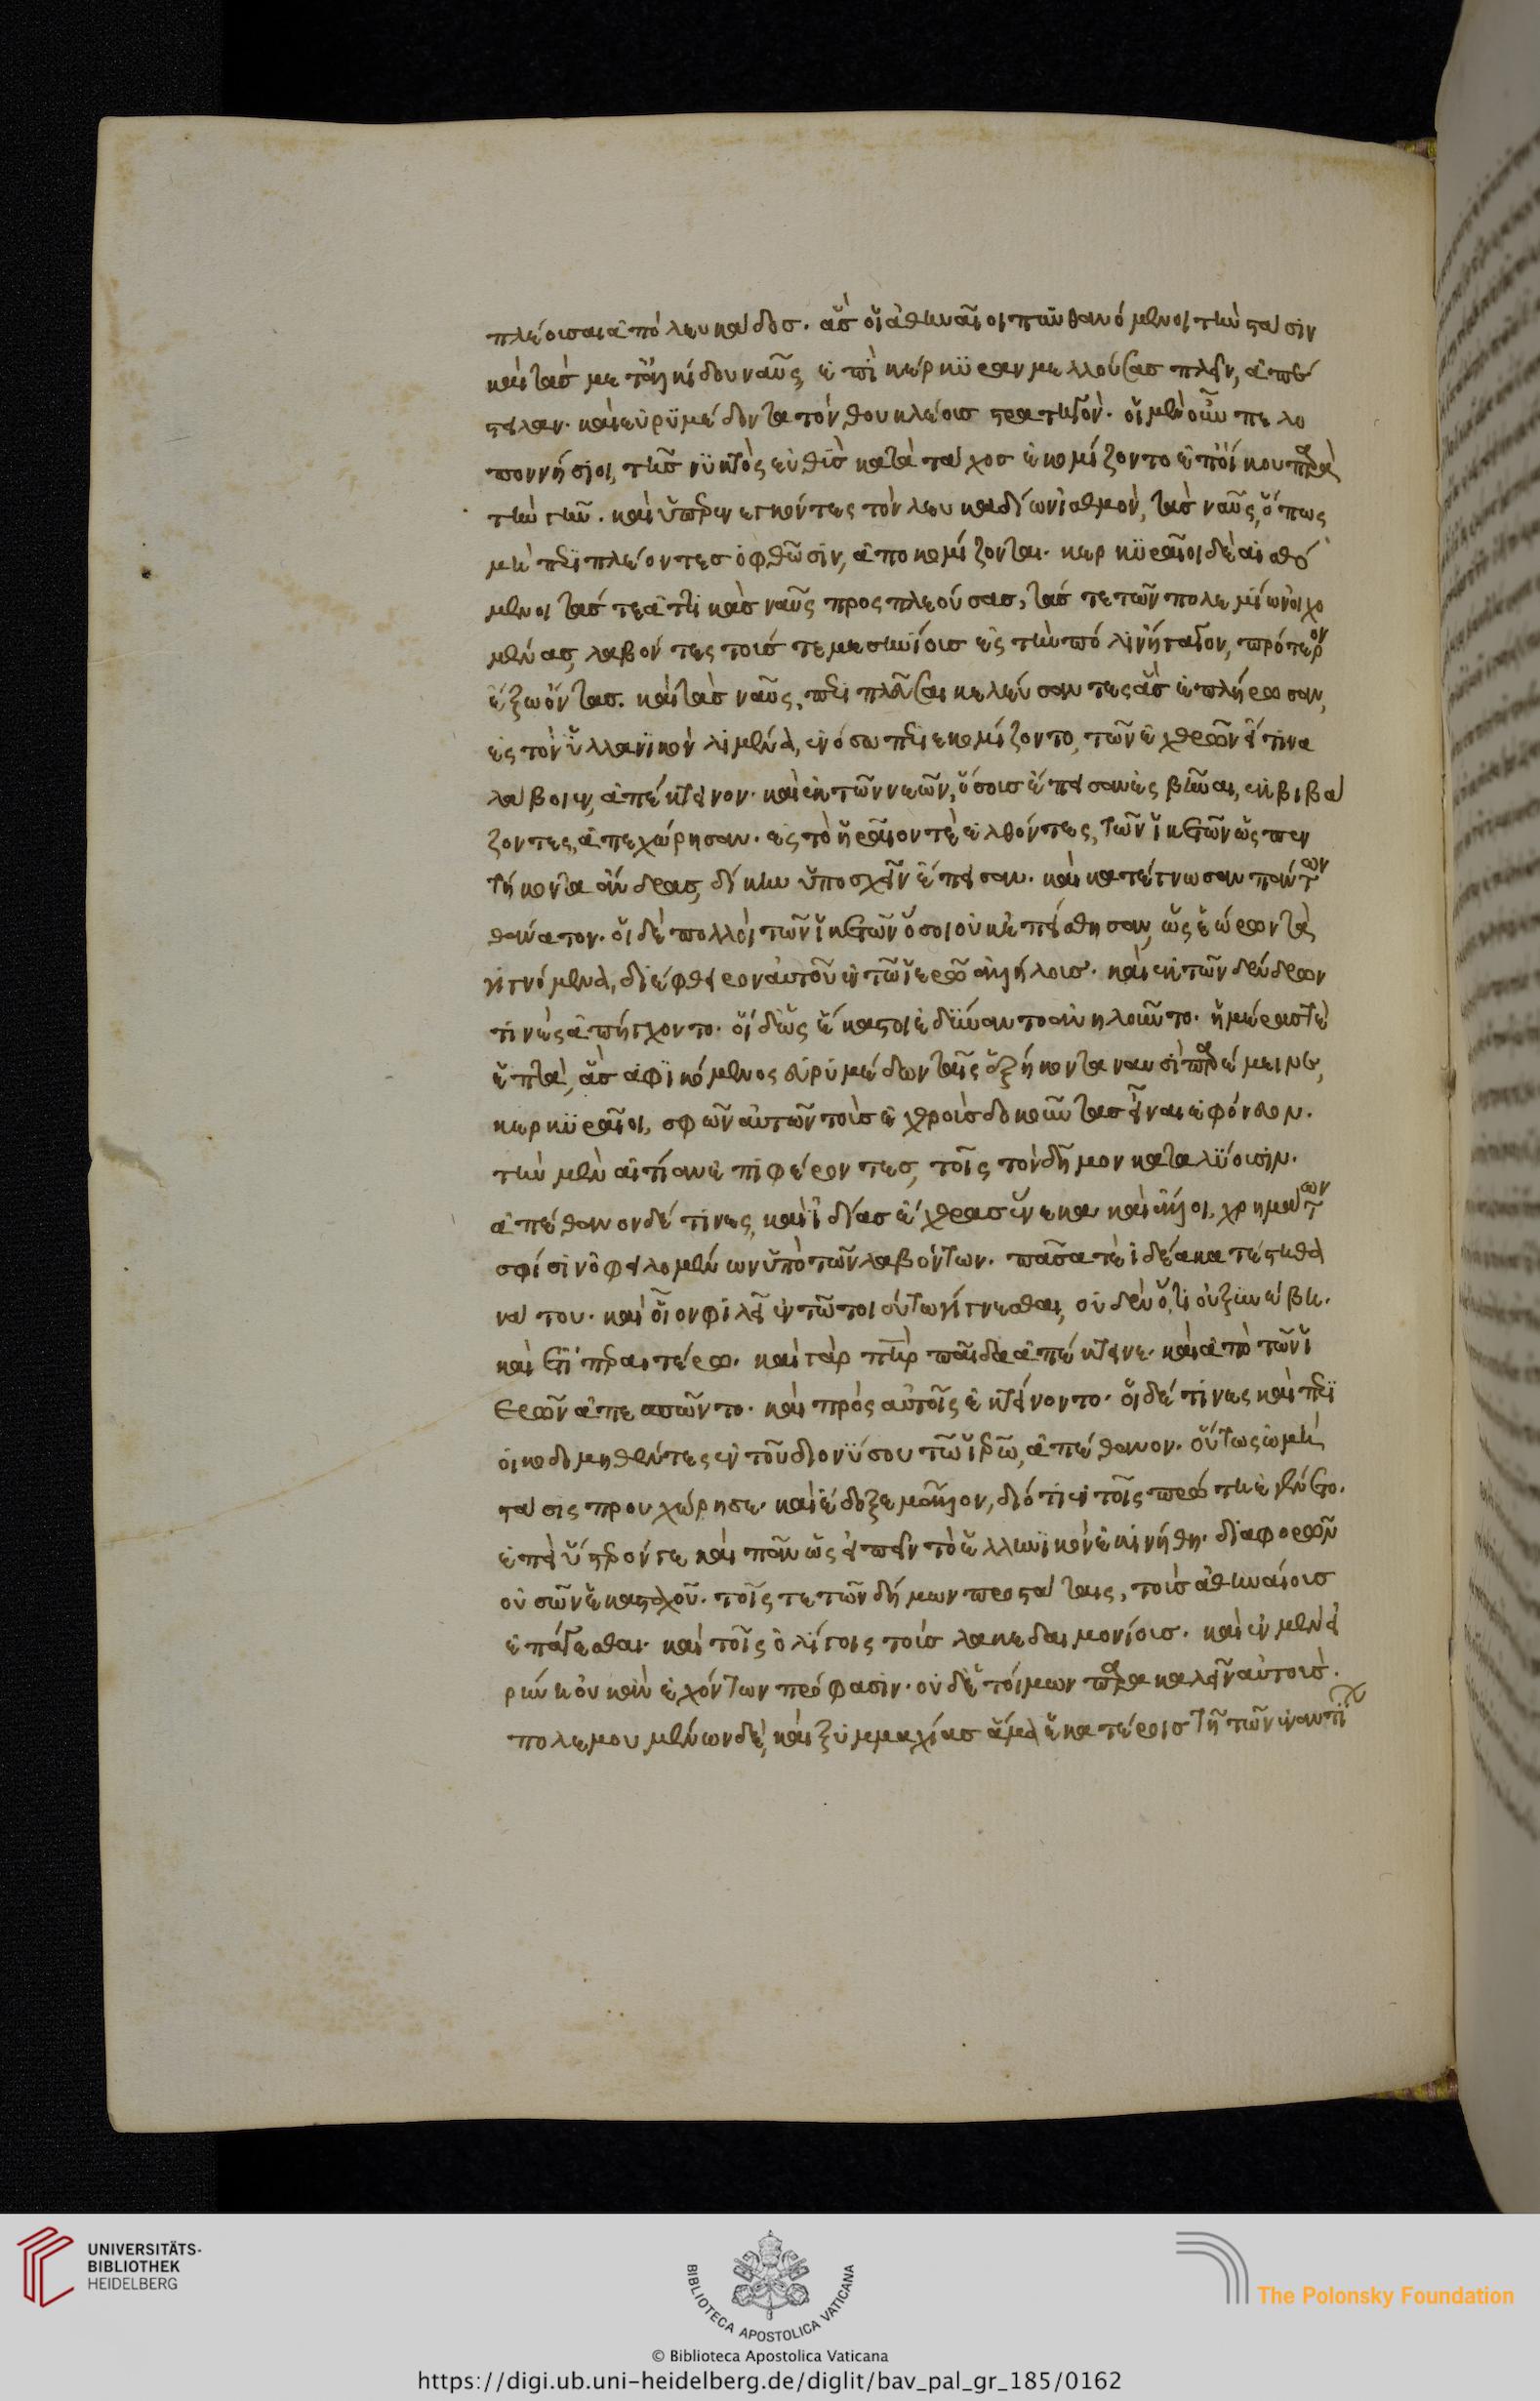 πλέουσαι ἀπὸ λευκάδος. ἃς οἱ ἀθηναῖοι πυνθανόμενοι τὴν στάσιν
καὶ τὰς μετ' ἀλκίδου ναῦς, ἐπὶ κέρκυραν μελλούσας πλεῖν, ἀπέ
στειλαν. καὶ εὐρυμέδοντα τὸν θουκλέους στρατηγόν. οἱ μὲν οὖν πελο
ποννήσιοι, τῆς νυκτὸς εὐθὺς κατὰ τάχος ἐκομίζοντο ἐπ' οἴκου παρὰ
τὴν γῆν. καὶ ὑπερενεγκόντες τὸν λευκαδίων ἰσθμὸν, τὰς ναῦς, ὅπως
μὴ περιπλέοντες ὀφθῶσιν, ἀποκομίζονται. κερκυραῖοι δὲ αἰσθό
μενοι τάς τε ἀττικὰς ναῦς προσπλεούσας, τάς τε τῶν πολεμίων οἰχο
μένας, λαβόντες τούς τε μεσηνίους ἐς τὴν πόλιν ἤγαγον, πρότερον
ἔξω ὄντας. καὶ τὰς ναῦς, περιπλεῦσαι κελεύσαντες ἃς ἐπλήρωσαν,
ἐς τὸν ὑλλαϊκὸν λιμένα, ἐν ὅσω περιεκομίζοντο, τῶν ἐχθρῶν εἴ τινα
λάβοιεν, ἀπέκτεινον. καὶ ἐκ τῶν νεῶν, ὅσους ἔπεισαν ἐσβῆναι, ἐκβιβά
ζοντες, ἀπεχώρησαν. ἐς τὸ ἡραῖόν τε ἐλθόντες, τῶν ἱκετῶν ὡς πεν
τήκοντα ἄνδρας, δίκην ὑποσχεῖν ἔπεισαν. καὶ κατέγνωσαν πάντων
θάνατον. οἱ δὲ πολλοὶ τῶν ἱκετῶν ὅσοι οὐκ ἐπείσθησαν, ὡς ἑώρων τὰ
γιγνόμενα, διέφθειρον αὐτοῦ ἐν τῶ ἱερῶ ἀλλήλους. καὶ ἐκ τῶν δένδρων
τινὲς ἀπήγχοντο. οἱ δ' ὡς ἕκαστοι ἐδύναντο ἀνηλοῦντο. ἡμέρας τε
ἑπτὰ, ἃς ἀφικόμενος εὐρυμέδων ταῖς ἑξήκοντα ναυσὶ παρέμεινε,
κερκυραῖοι, σφῶν αὐτῶν τοὺς ἐχθροὺς δοκοῦντας εἶναι ἐφόνευον.
τὴν μὲν αἰτίαν ἐπιφέροντες, τοῖς τὸν δῆμον καταλύουσιν.
ἀπέθανον δέ τινες, καὶ ἰδίας ἔχθρας ἕνεκα καὶ ἄλλοι, χρημάτων
σφίσιν ὀφειλομένων ὑπὸ τῶν λαβόντων. πᾶσά τε ἰδέα κατέστη θα
νάτου. καὶ οἷον φιλεῖ ἐν τῶ τοιούτω γίγνεσθαι, οὐδὲν ὅ,τι οὐ ξυνέβη.
καὶ ἔτι περαιτέρω. καὶ γὰρ πὴρ παῖδα ἀπέκτεινε. καὶ ἀπὸ τῶν ἱ
ερῶν ἀπεσπῶντο. καὶ πρὸς αὐτοῖς ἐκτείνοντο. οἱ δέ τινες καὶ περι
οικοδομηθέντες ἐν τοῦ διονύσου τῶ ἱερῶ, ἀπέθανον. οὕτως ὠμὴ
στάσις προυχώρησε. καὶ ἔδοξε μᾶλλον, διότι ἐν τοῖς πρώτη ἐγένετο.
ἐπεὶ ὕστερόν γε καὶ πᾶν ὡς εἰπεῖν τὸ ἑλληνικὸν ἐκινήθη. διαφορῶν
οὐσῶν ἑκασταχοῦ. τοῖς τε τῶν δήμων προστάταις, τοὺς ἀθηναίους
ἐπάγεσθαι. καὶ τοῖς ὀλίγοις τοὺς λακεδαιμονίους. καὶ ἐν μὲν εἰ
ρήνη οὐκ ἂν ἐχόντων πρόφασιν. οὐδ' ἑτοίμων παρακαλεῖν αὐτούς.
πολεμουμένων δὲ, καὶ ξυμμαχίας ἅμα ἑκατέροις τῆ τῶν ἐναντί
UNIVERSITÄTS-
BIBLIOTHEK
HEIDELBERG
BIBLIOTECA APOSTOLICA VATICANA
The Polonsky Foundation
© Biblioteca Apostolica Vaticana
https://digi.ub.uni-heidelberg.de/diglit/bav_pal_gr_185/0162